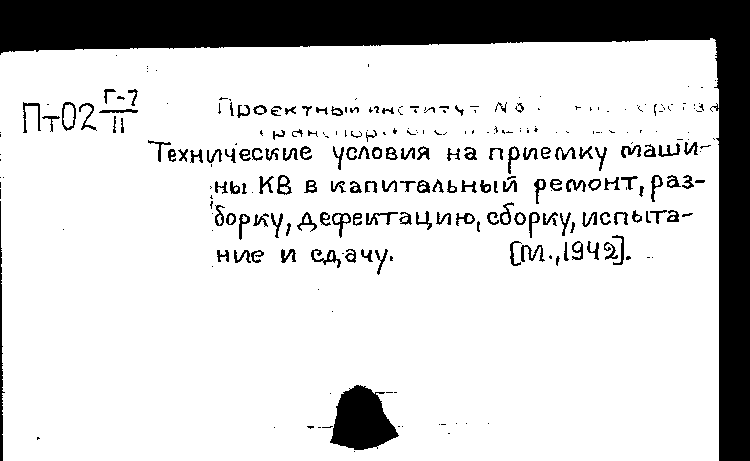 Пт02 Г-7/II
Проектный институт №8
Технические условия на приемку маши-
ны КВ в капитальный ремонт, раз-
борку, дефектацию, сборку, испыта-
ние и сдачу. [М.,1942].